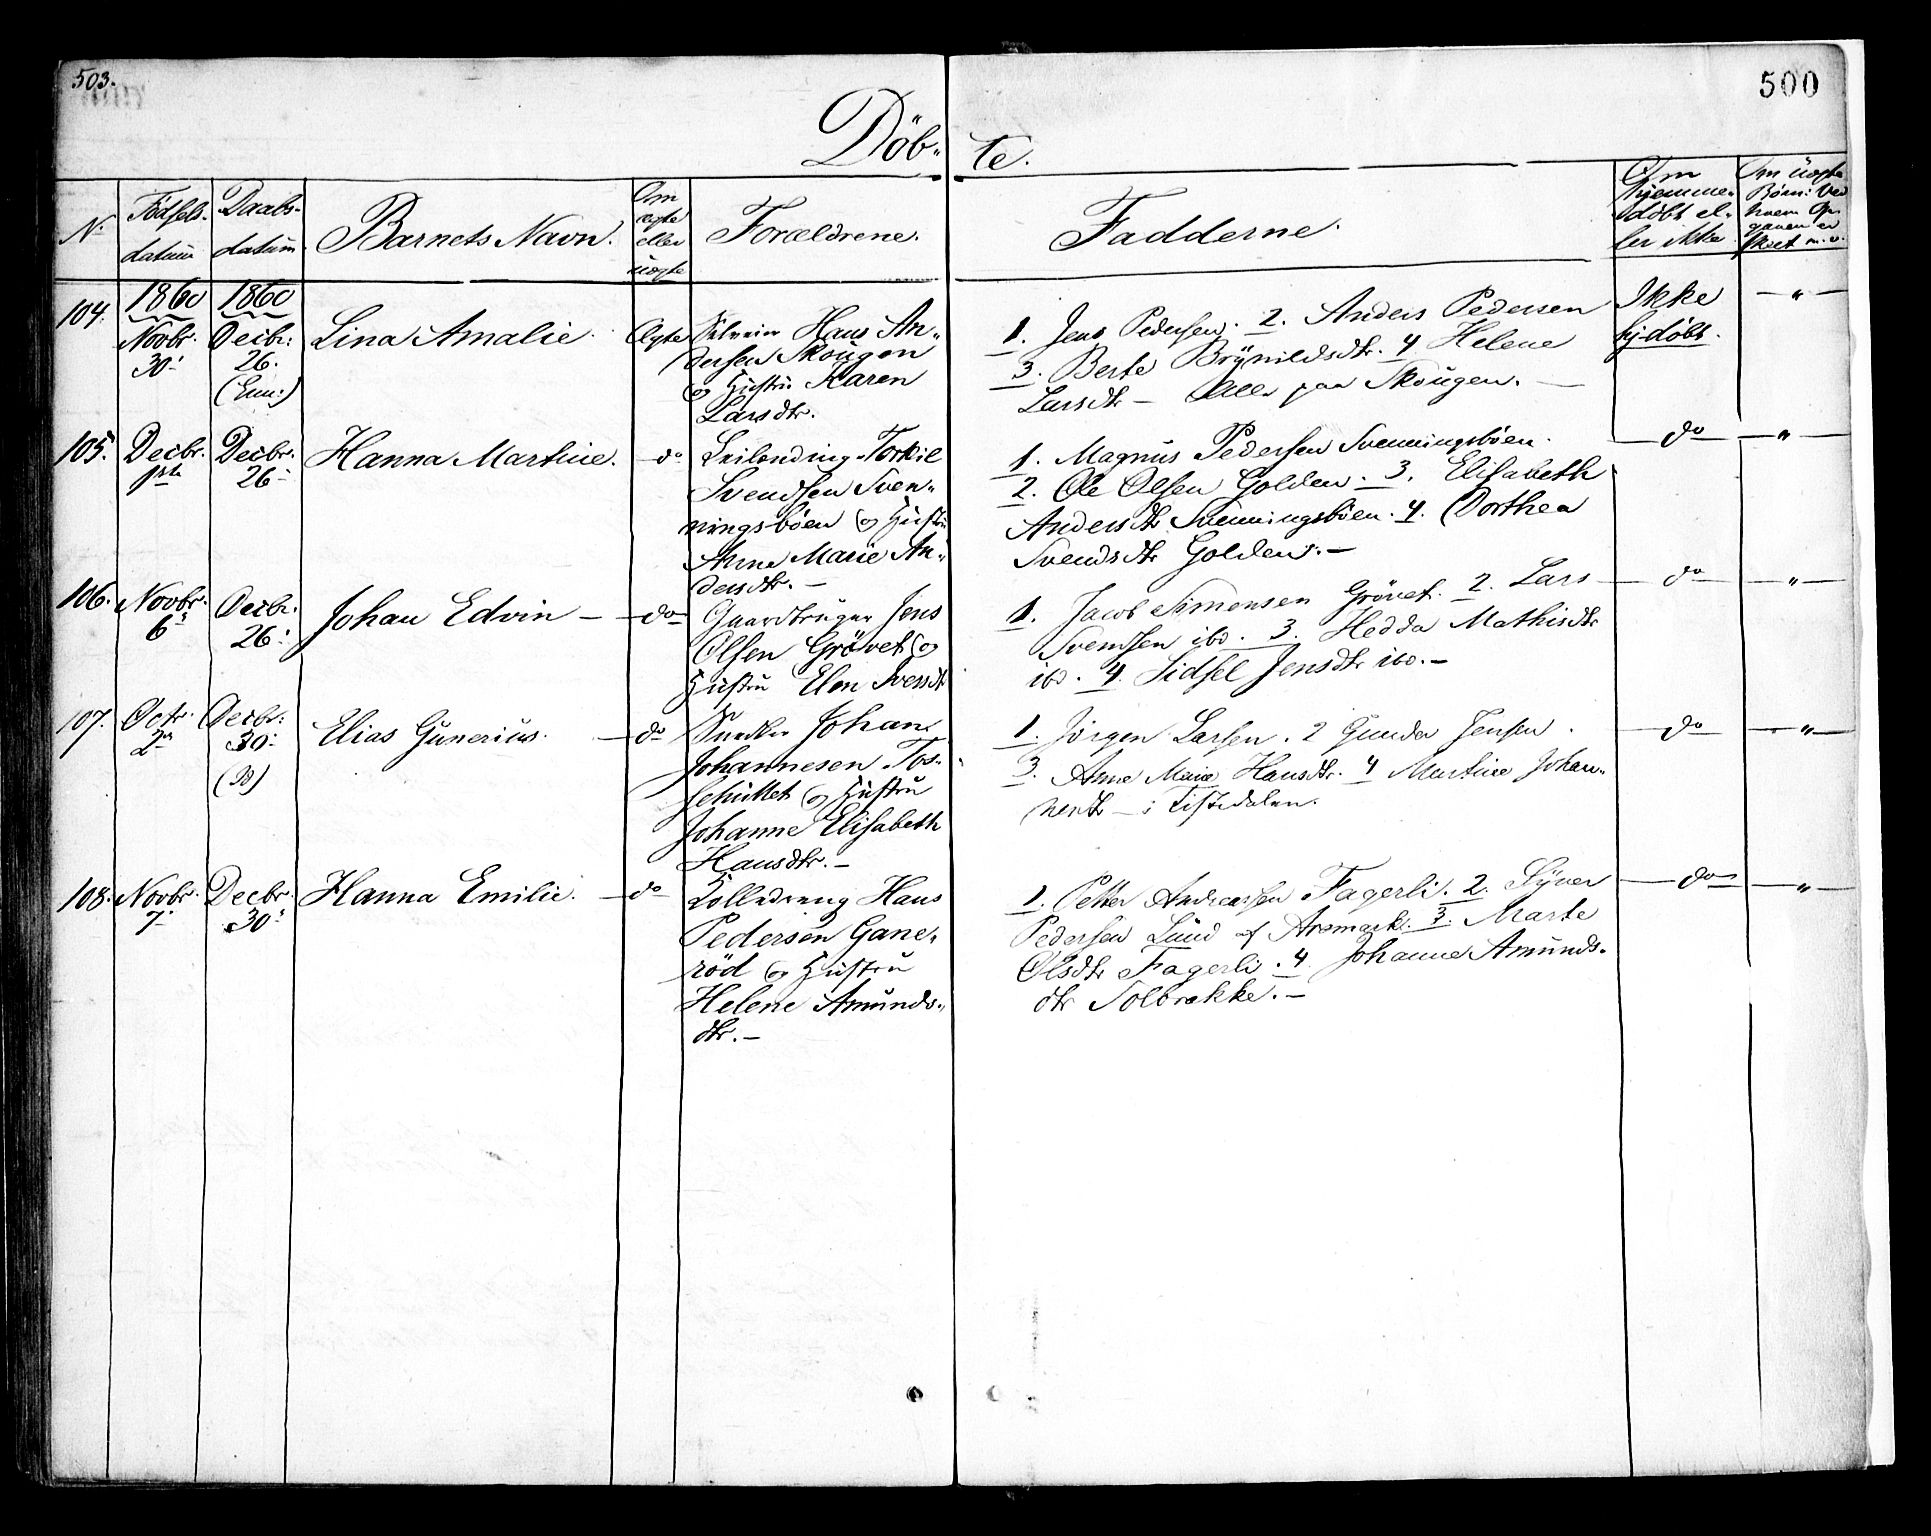 503.
500
Döb-
te.
N.
Födsels-
datum
Daabs-
datum
Barnets Navn.
Om
ægte
eller
uægte
Forældrene.
Fadderne.
Om
hjemme-
döbt el-
ler ikke
Om uægte
Børn: ved
hvem Op-
gaven er
skeet m. v.
104.
1860
Novbr.
30:
1860
Decbr:
26.
(Enn:)
Lina Amalie.
Ægte
Selveier Hans An-
dersen Skougen
og Hustru Karen
Larsdtr.
1. Jens Pedersen. 2. Anders Pedersen
3. Berte Brynildsdtr. 4 Helene
Larsdtr — Alle paa Skougen. —
Ikke
hj-döbt.
— " —
105.
Decbr.
1ste
Decbr.
26:
Hanna Martine.
do
Leilending Torkil
Svendsen Sven-
ningsböen og Hustru
Anne Marie An-
dersdtr. —
1. Magnus Pedersen Svenningsböen.
2. Ole Olsen Golden. 3. Elisabeth
Andersdtr Svenningsböen. 4. Dorthea
Svendsdtr Golden. —
— do —
— " —
106.
Novbr.
6:
Decbr.
26:
Johan Edvin —
— do —
Gaardbruger Jens
Olsen Grövet og
Hustru Elen Svensdtr
1. Jacob Simonsen Grövet. 2. Lars
Svendsen ibd. 3. Hedda Mathisdtr
ibd. 4. Sidsel Jensdtr ibd. —
— do —
— " —
107.
Octr.
2n
Decbr:
30:
Elias Gunerius.
— do
Snedker Johan
Johannesen Tos-
sehullet og Hustru
Johanne Elisabeth
Hansdtr. —
1. Jörgen Larsen. 2 Gunder Jensen.
3. Anne Marie Hansdtr. 4 Martine Johan-
nesdtr — i Tistedalen.
— do —
— " —
108.
Novbr.
7:
Decbr.
30:
Hanna Emilie.
— do
Rolledreng Hans
Pedersen Gane-
röd og Hustru
Helene Amunds-
dtr. —
1. Petter Andreassen Fagerli. 2. Syver
Pedersen Lund af Aremark. 3. Marte
Olsdtr Fagerli. 4. Johanne Amunds-
dtr Solbrække. —
— do —
— " —